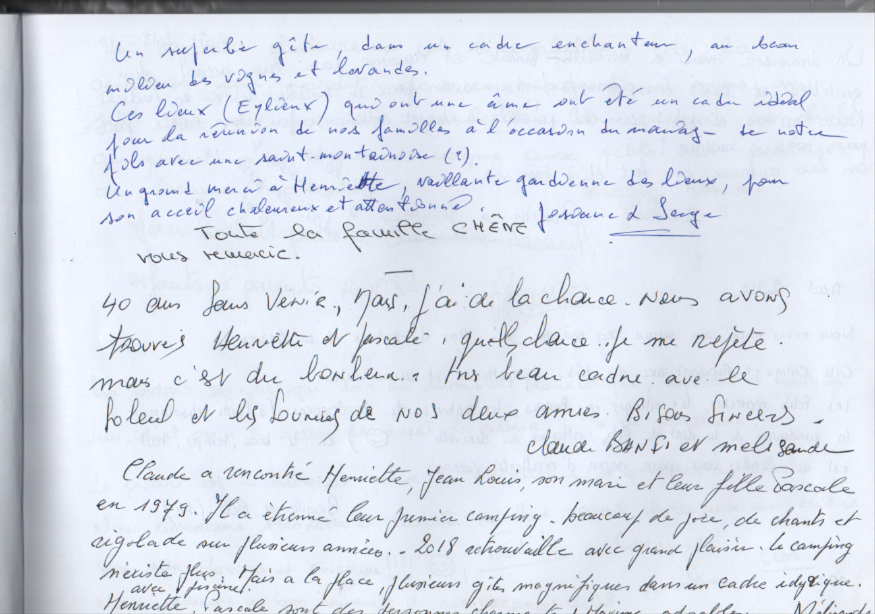 Un superbe gîte, dans un cadre enchanteur, au beau
milieu des vignes et lavandes.
Ces lieux (Eylieux) qui ont une âme ont été un cadre idéal
pour la réunion de nos familles à l'occasion du mariage de notre
fils avec une saint-montainoise (?).
Un grand merci à Henriette, vaillante gardienne des lieux, pour
son acceuil chaleureux et attentionné. Josiane & Serge
Toute la famille CHÊNE
vous remercie.
40 ans sans venir, mais, j'ai de la chance. Nous avons
trouvés Henriette et Pascale, quelle chance.. je me répète.
mais c'est du bonheur. Très beau cadre avec le
soleil et les souries de nos deux amies. Bisous sincers.
Claude BANFI et melisande
Claude a rencontré Henriette, Jean Louis, son mari et leur fille Pascale
en 1979. Il a étrenné leur premier camping. beaucoup de joie, de chants et
rigolade sur plusieurs années.. 2018 retrouvaille avec grand plaisir. Le camping
n'existe plus. Mais a la place, plusieurs gites magnifiques dans un cadre idyllique.
avec piscine.
Henriette, Pascale sont des personnes